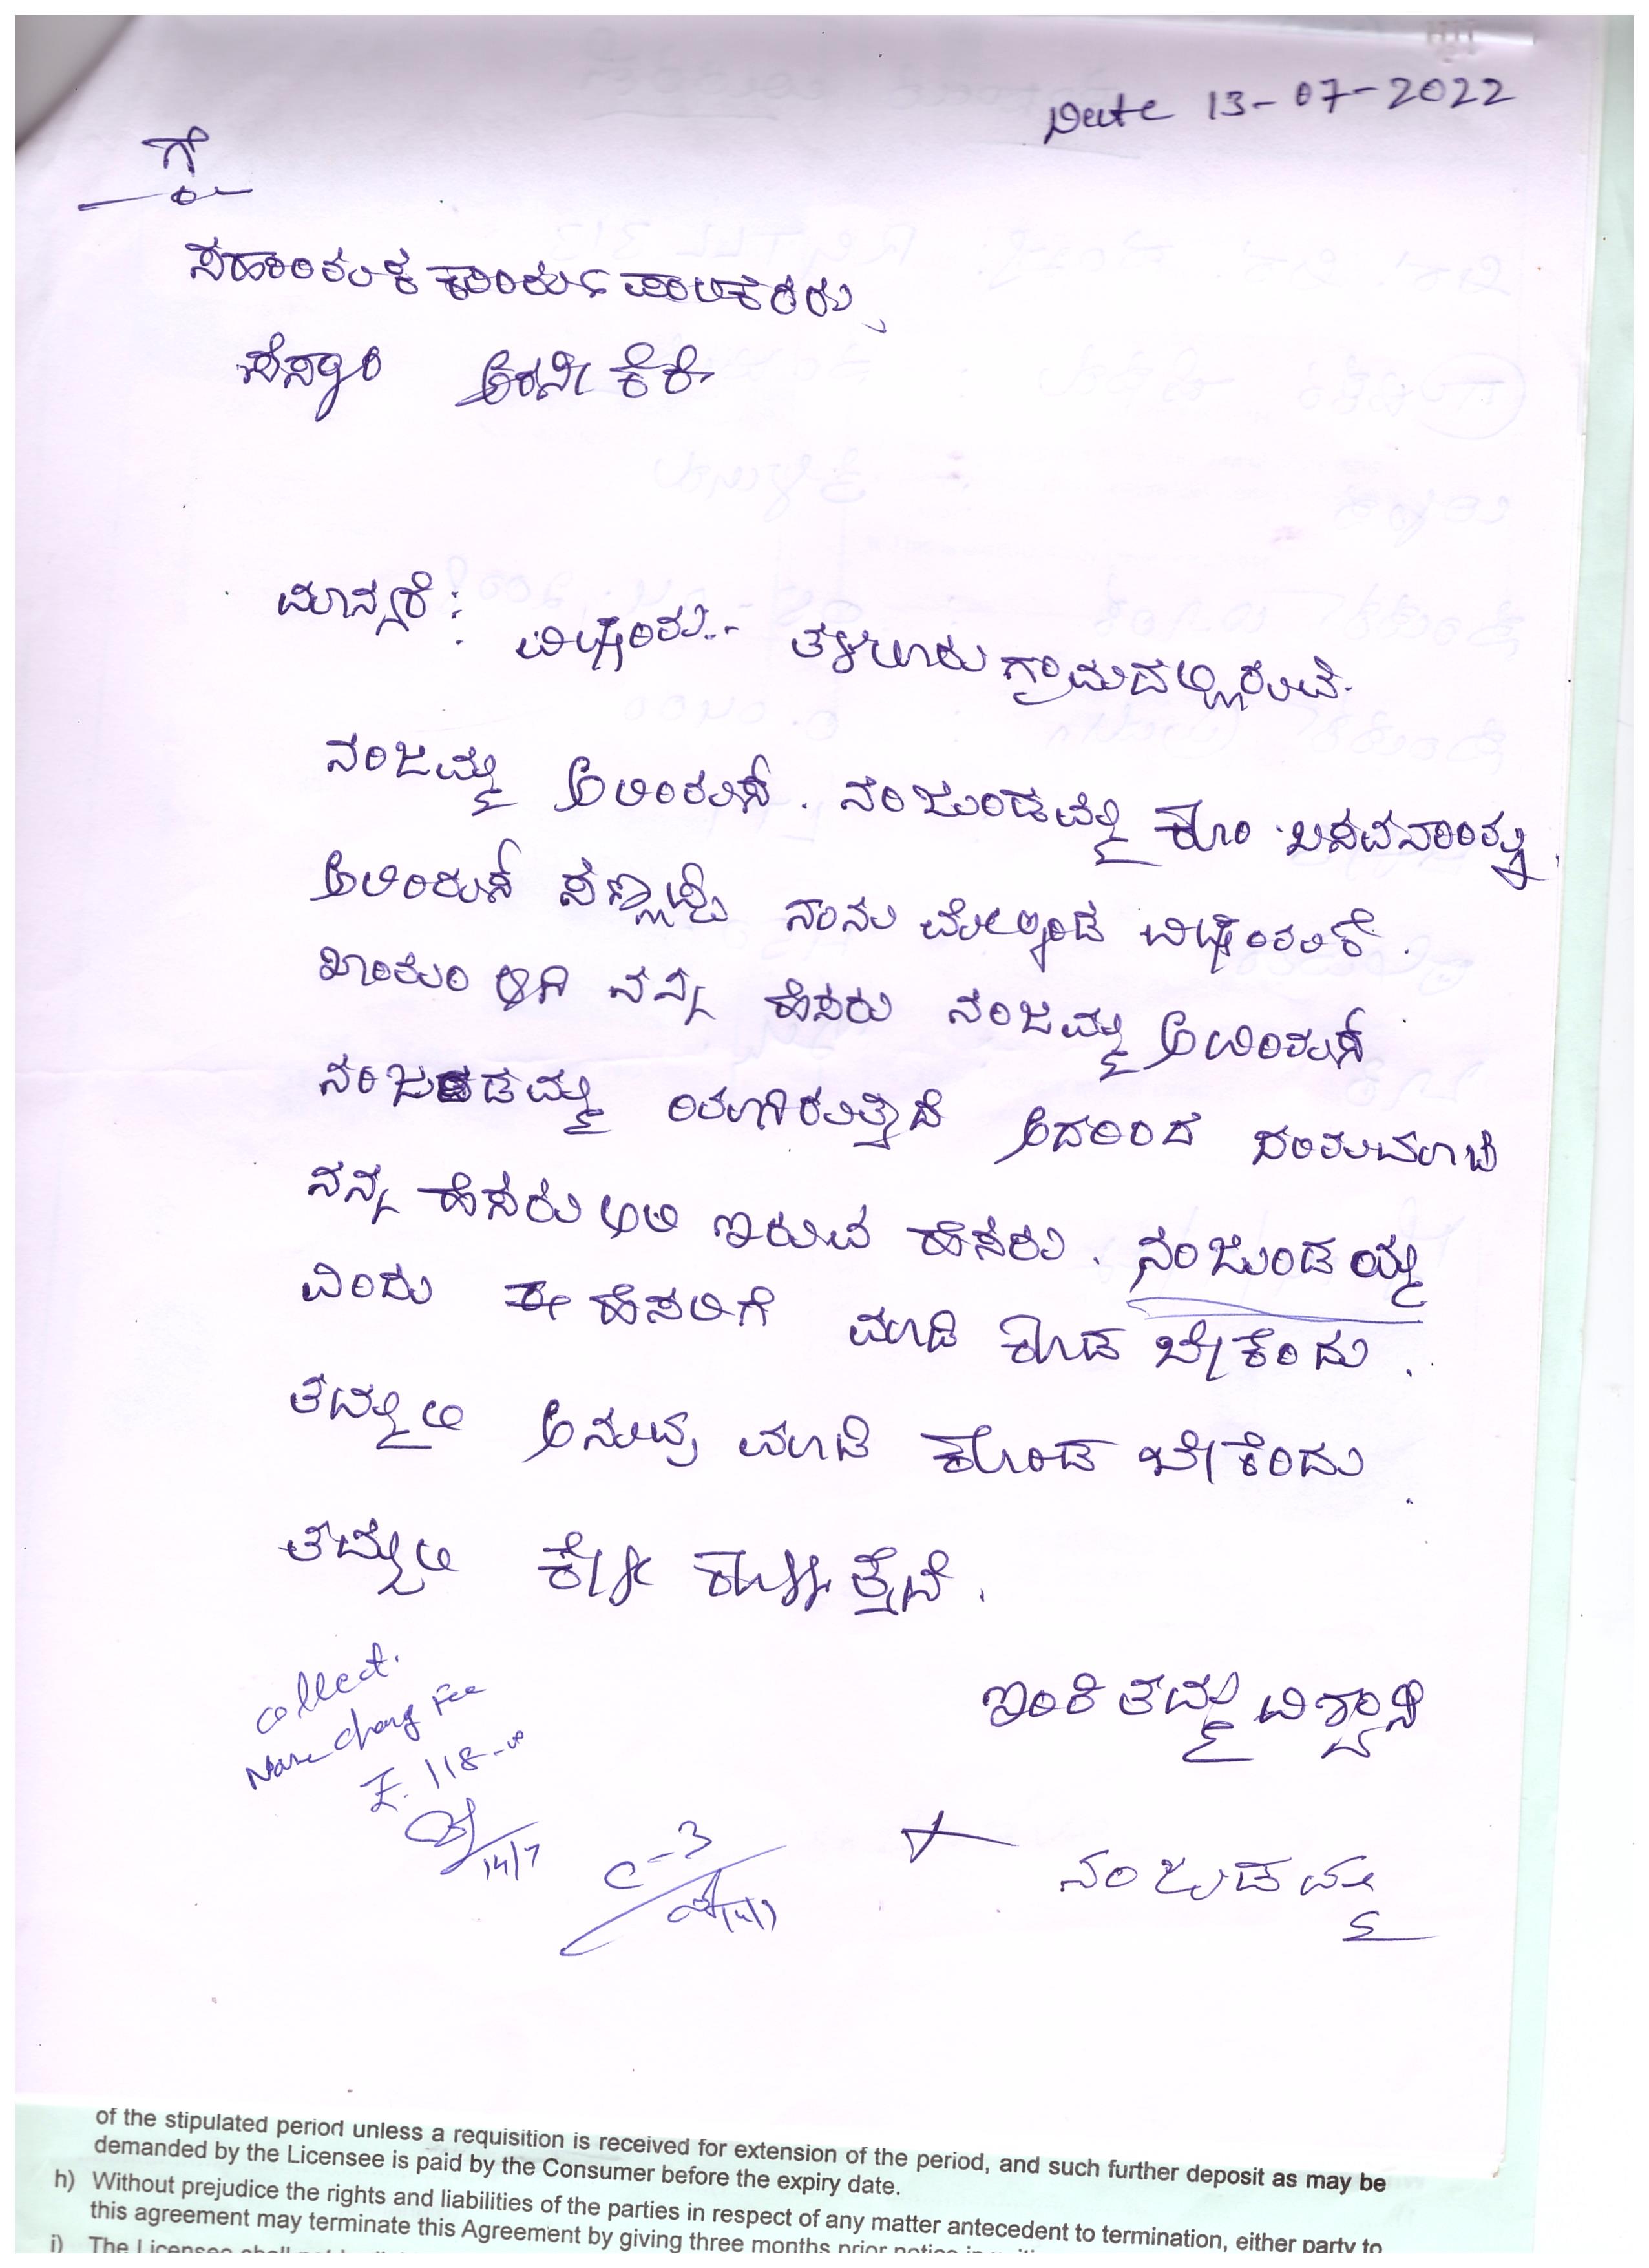 Date 13-07-2022
ಗೆ
ಸಹಾಯಕ ಕಾರ್ಯಪಾಲಕರರು,
ಸೆಸ್ಕಾಂ ಅರಸೀಕೆರೆ
ಮಾನ್ಯರೆ:
ವಿಷಯ:- ತಳಲೂರು ಗ್ರಾಮದಲ್ಲಿರುವೆ.
ನಂಜಮ್ಮ ಅಲಿಯಾಸ್. ನಂಜುಂಡಮ್ಮ ಕೊಂ ಬಸವನಾಯ್ಕ.
ಅಲಿಯಾಸ್ ಸಣ್ಣಪ್ಪ ನಾನು ಮೇಲ್ಕಂಡ ವಿಷಯಕೆ.
ಖಾಯಂ ಆಗಿ ನನ್ನ ಹೆಸರು ನಂಜಮ್ಮ ಅಲಿಯಾಸ್
ನಂಜುಡಮ್ಮ ಯಾಗಿರುತ್ತಿದೆ ಅದರಿಂದ ದಯಮಾಡಿ
ನನ್ನ ಹೆಸರು ಅಲಿ ಇರುವ ಹೆಸರು. ನಂಜುಂಡಯ್ಯ
ಎಂದು ಈ ಹೆಸರಿಗೆ ಮಾಡಿ ಕೊಡ ಬೇಕೆಂದು.
ತಮ್ಮಲಿ ಅನುವು ಮಾಡಿ ಕೊಂಡ ಬೇಕೆಂದು.
ತಮ್ಮಲಿ ಕೇಳಿ ಕೊಳ್ಳುತ್ತೆವೆ.
ಇಂತಿ ತಮ್ಮ ವಿಶ್ವಾಸಿ
collect.
Name Chang Fee
118-00
14/7
C-3
14/7
ನಂಜುಡಮ್ಮ
of the stipulated period unless a requisition is received for extension of the period, and such further deposit as may be
demanded by the Licensee is paid by the Consumer before the expiry date.
h) Without prejudice the rights and liabilities of the parties in respect of any matter antecedent to termination, either party to
this agreement may terminate this Agreement by giving three months prior notice in
i) The Licensee